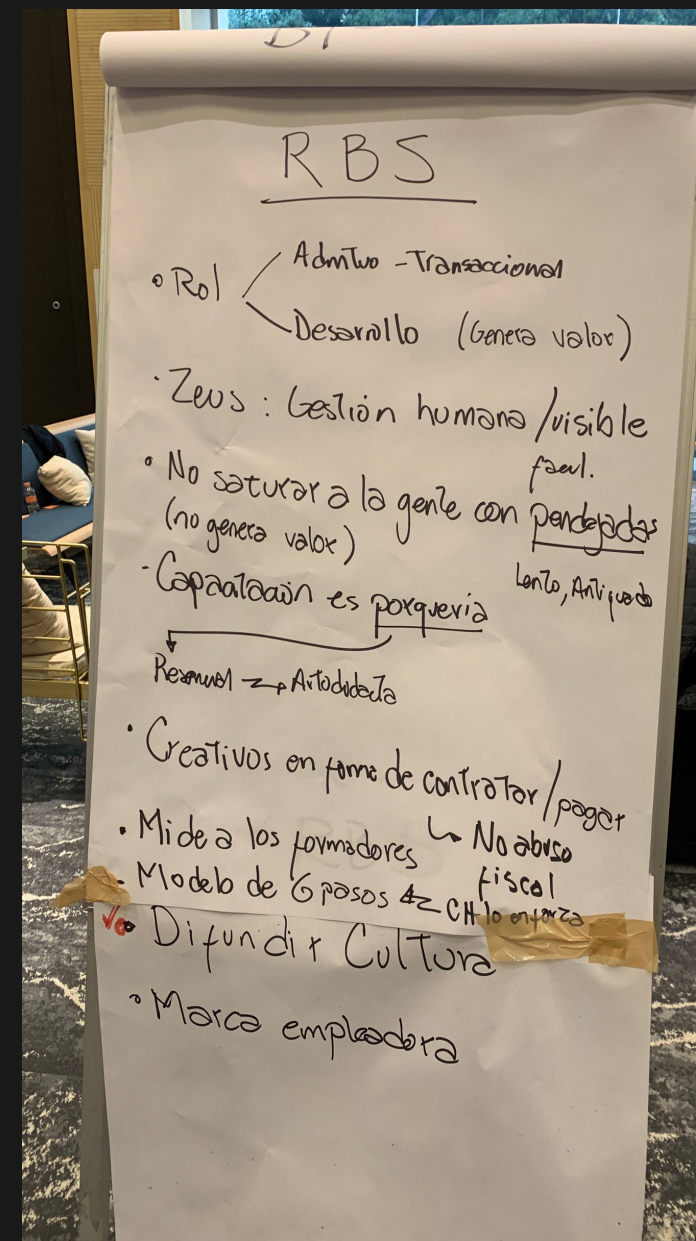 RBS
• Rol
Admtvo - Transaccional
Desarrollo (Genera valor)
· Zeus : Gestión humana / visible
facil.
• No saturar a la gente con pendejadas
(no genera valor)
Lento, Antiguado
· Capacitación es porquería
→ Autodidacta
· Creativos en forma de contratar / pagar
↳ No abuso
fiscal
· Mide a los formadores
· Modelo de 6 pasos CH lo enforza
• Difundir Cultura
• Marca empleadora